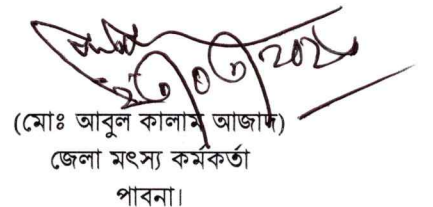 (মোঃ আবুল কালাম আজাদ)
জেলা মৎস্য কর্মকর্তা
পাবনা।